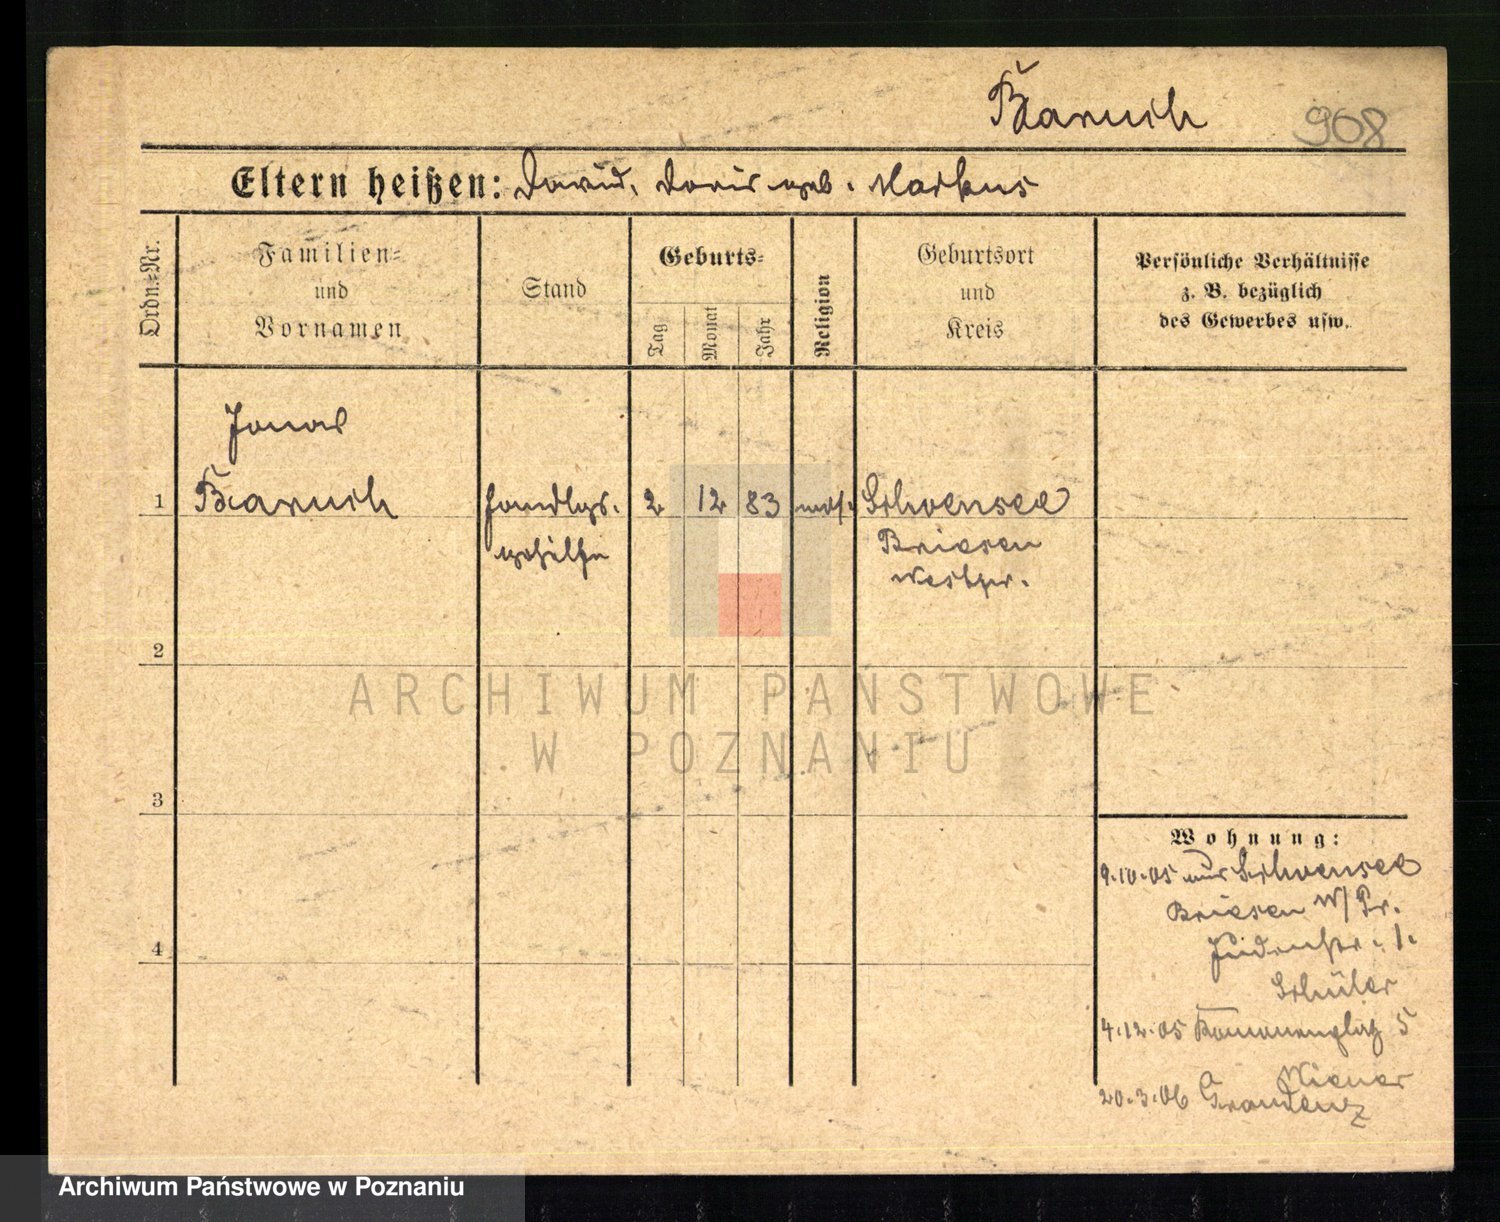 Baruch
908
Eltern heißen: David, Doris geb. Markus
Ordn.-Nr.
Familien-
und
Vornamen
Stand
Geburts-
Tag
Monat
Jahr
Religion
Geburtsort
und
Kreis
Persönliche Verhältnisse
z. B. bezüglich
des Gewerbes usw.
Jonas
1 Baruch Handlgs. 2 12 83 mos. Schoensee
gehilfe Briesen
Westpr.
2
3
4
Wohnung:
9.10.05 aus Schoensee
Briesen W/Pr.
Judenstr. 1.
Schüler
4.12.05 5
20.3.06 Graudenz
ARCHIWUM PAŃSTWOWE
W POZNANIU
Archiwum Państwowe w Poznaniu